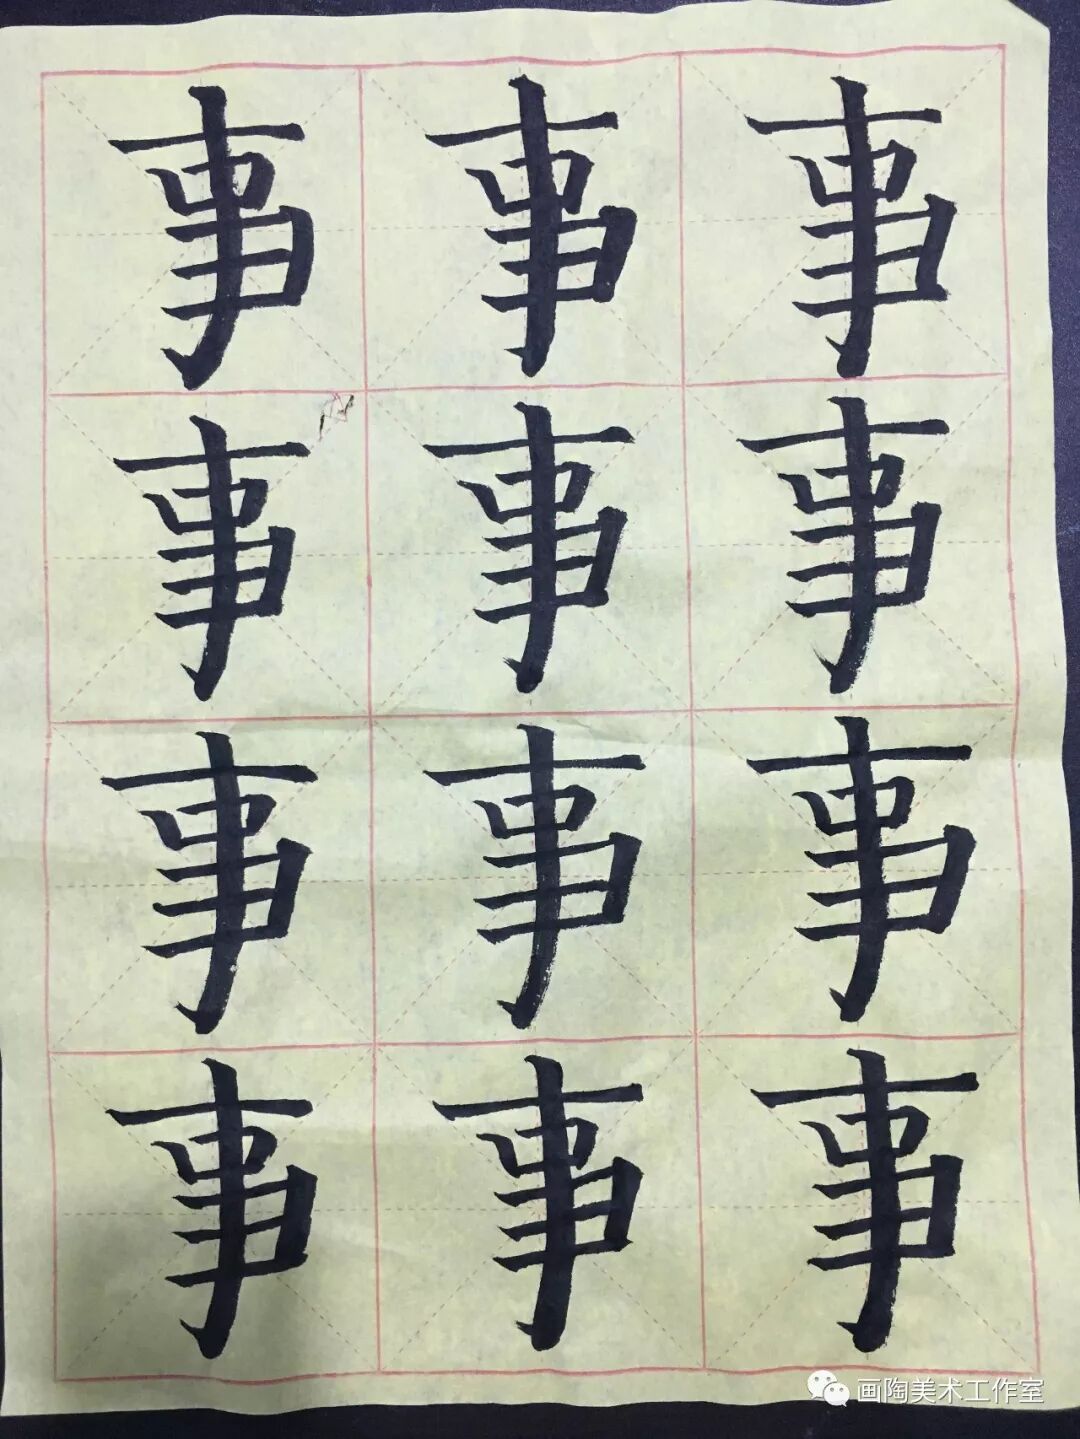 事事事
事事事
事事事
事事事
画陶美术工作室